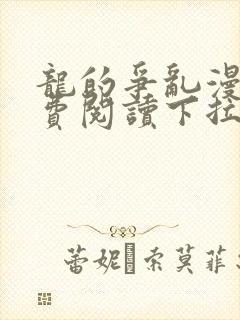 龍的爭亂漫
費閱讀下拉
蕾妮 索莫菲